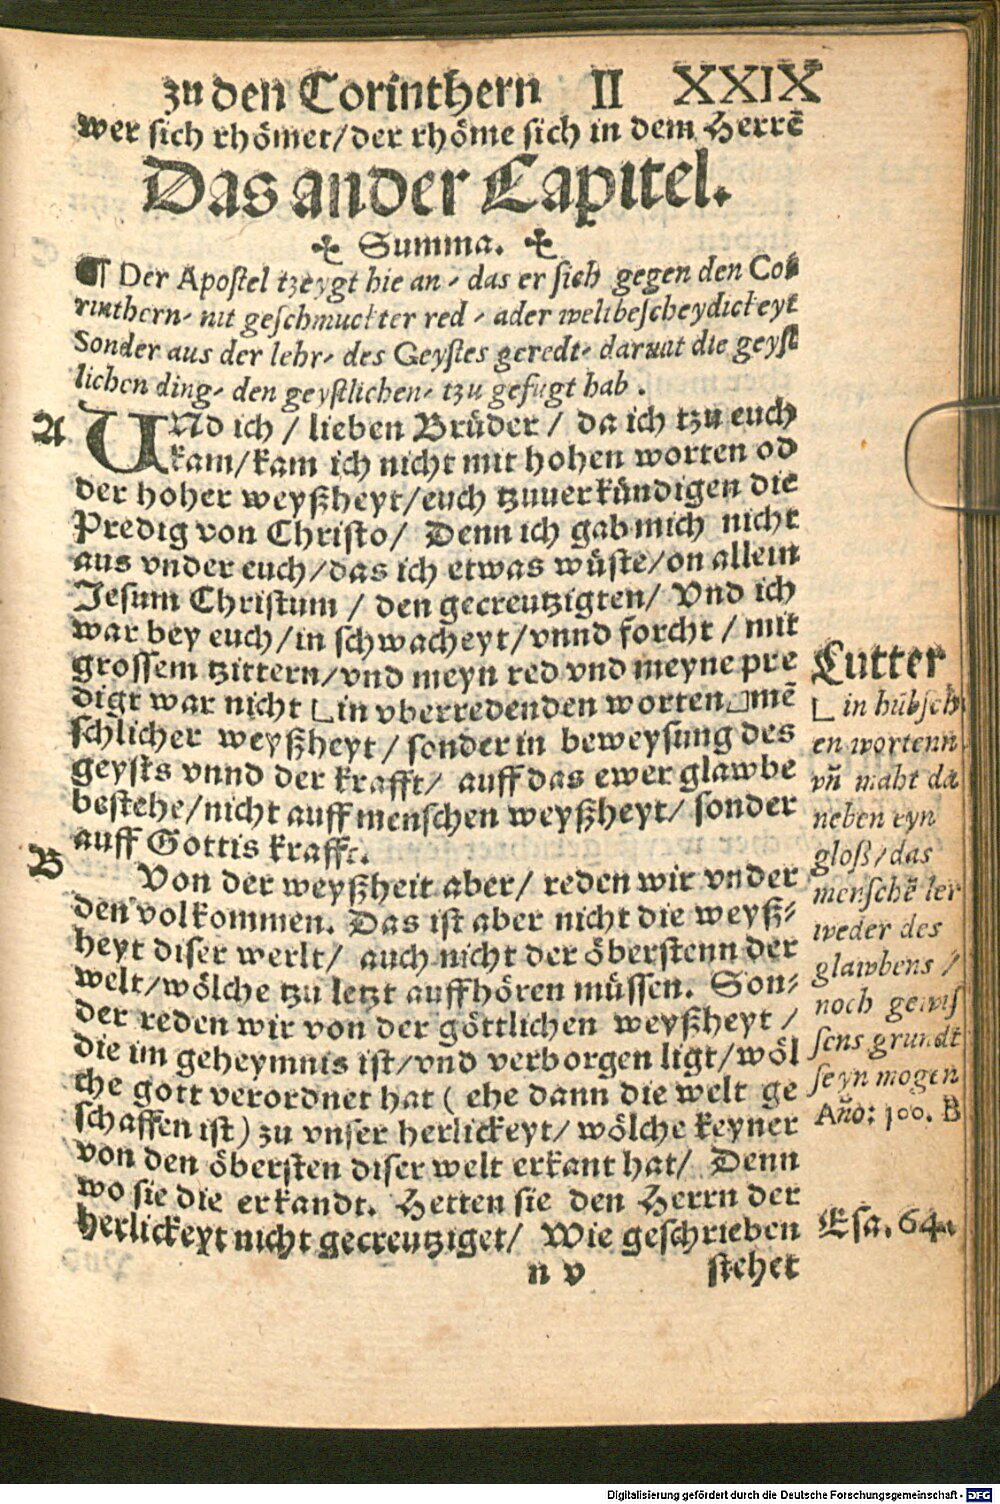 zu den Corinthern II XXIX
wer sich rhömet/der rhöme sich in dem Herrē
Das ander Capitel.
✣ Summa. ✣
¶ Der Apostel tzeygt hie an, das er sich gegen den Co⸗
rinthern, nit geschmuckter red, ader weltbescheydickeyt
Sonder aus der lehr, des Geystes geredt, darmit die geyst
lichen ding, den geystlichen, tzu gefugt hab.
A UNd ich / lieben Brüder / da ich tzu euch
kam/kam ich nicht mit hohen worten od
der hoher weyßheyt/euch tzuuerkündigen die
Predig von Christo/ Denn ich gab mich nicht
aus vnder euch/das ich etwas wüste/on allein
Jesum Christum / den gecreutzigten/ Vnd ich
war bey euch/in schwacheyt/vnnd forcht / mit
grossem tzittern/vnd meyn red vnd meyne pre
digt war nicht in vberredenden worten mē
schlicher weyßheyt / sonder in beweysung des
geysts vnnd der krafft/ auff das ewer glawbe
bestehe/nicht auff menschen weyßheyt/ sonder
auff Gottis krafft.
B Von der weyßheit aber/ reden wir vnder
den volkommen. Das ist aber nicht die weyß⸗
heyt diser werlt/ auch nicht der öberstenn der
welt/wölche tzu letzt auffhören müssen. Son⸗
der reden wir von der göttlichen weyßheyt /
die im geheymnis ist/vnd verborgen ligt/wöl
che gott verordnet hat ( ehe dann die welt ge
schaffen ist) zu vnser herlickeyt/ wölche keyner
von den öbersten diser welt erkant hat/ Denn
wo sie die erkandt. Hetten sie den Herrn der
herlickeyt nicht gecreutziget/ Wie geschrieben
n v stehet
Lutter
in hübsch
en wortenn
vñ maht da
neben eyn
gloß/das
menschē ler
weder des
glawbens /
noch gewis
sens grundt
seyn mogen
Año: 100. B
Esa. 64.
Digitalisierung gefördert durch die Deutsche Forschungsgemeinschaft - DFG